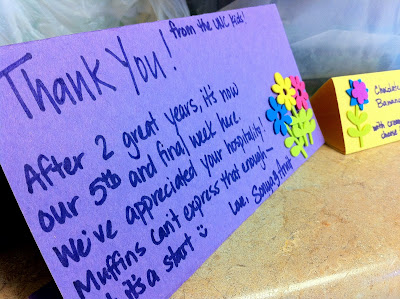 Thank You!
from the UNC kids!
After 2 great years, it's now
our 5th and final week here.
We've appreciated your hospitality!
Muffins can't express that enough—
it's a start
Love,
Chocolate
Banana
with cream
cheese